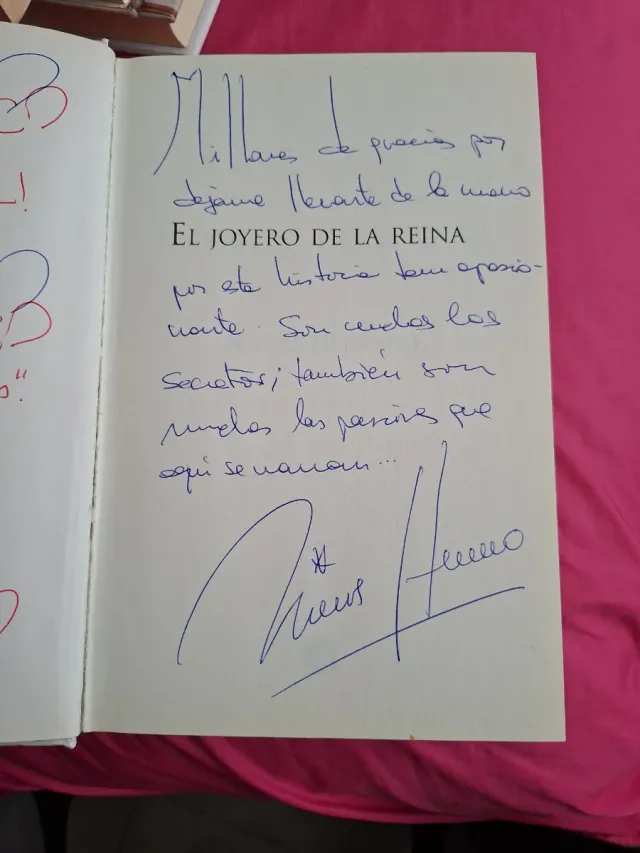 L!
s".
Millares de gracias por
dejarme llevarte de la mano
EL JOYERO DE LA REINA
por esta historia tan apasio-
nante. Son muchos los
secretos; también son
muchas las pasiones que
aquí se narran...
Nieves Herrero